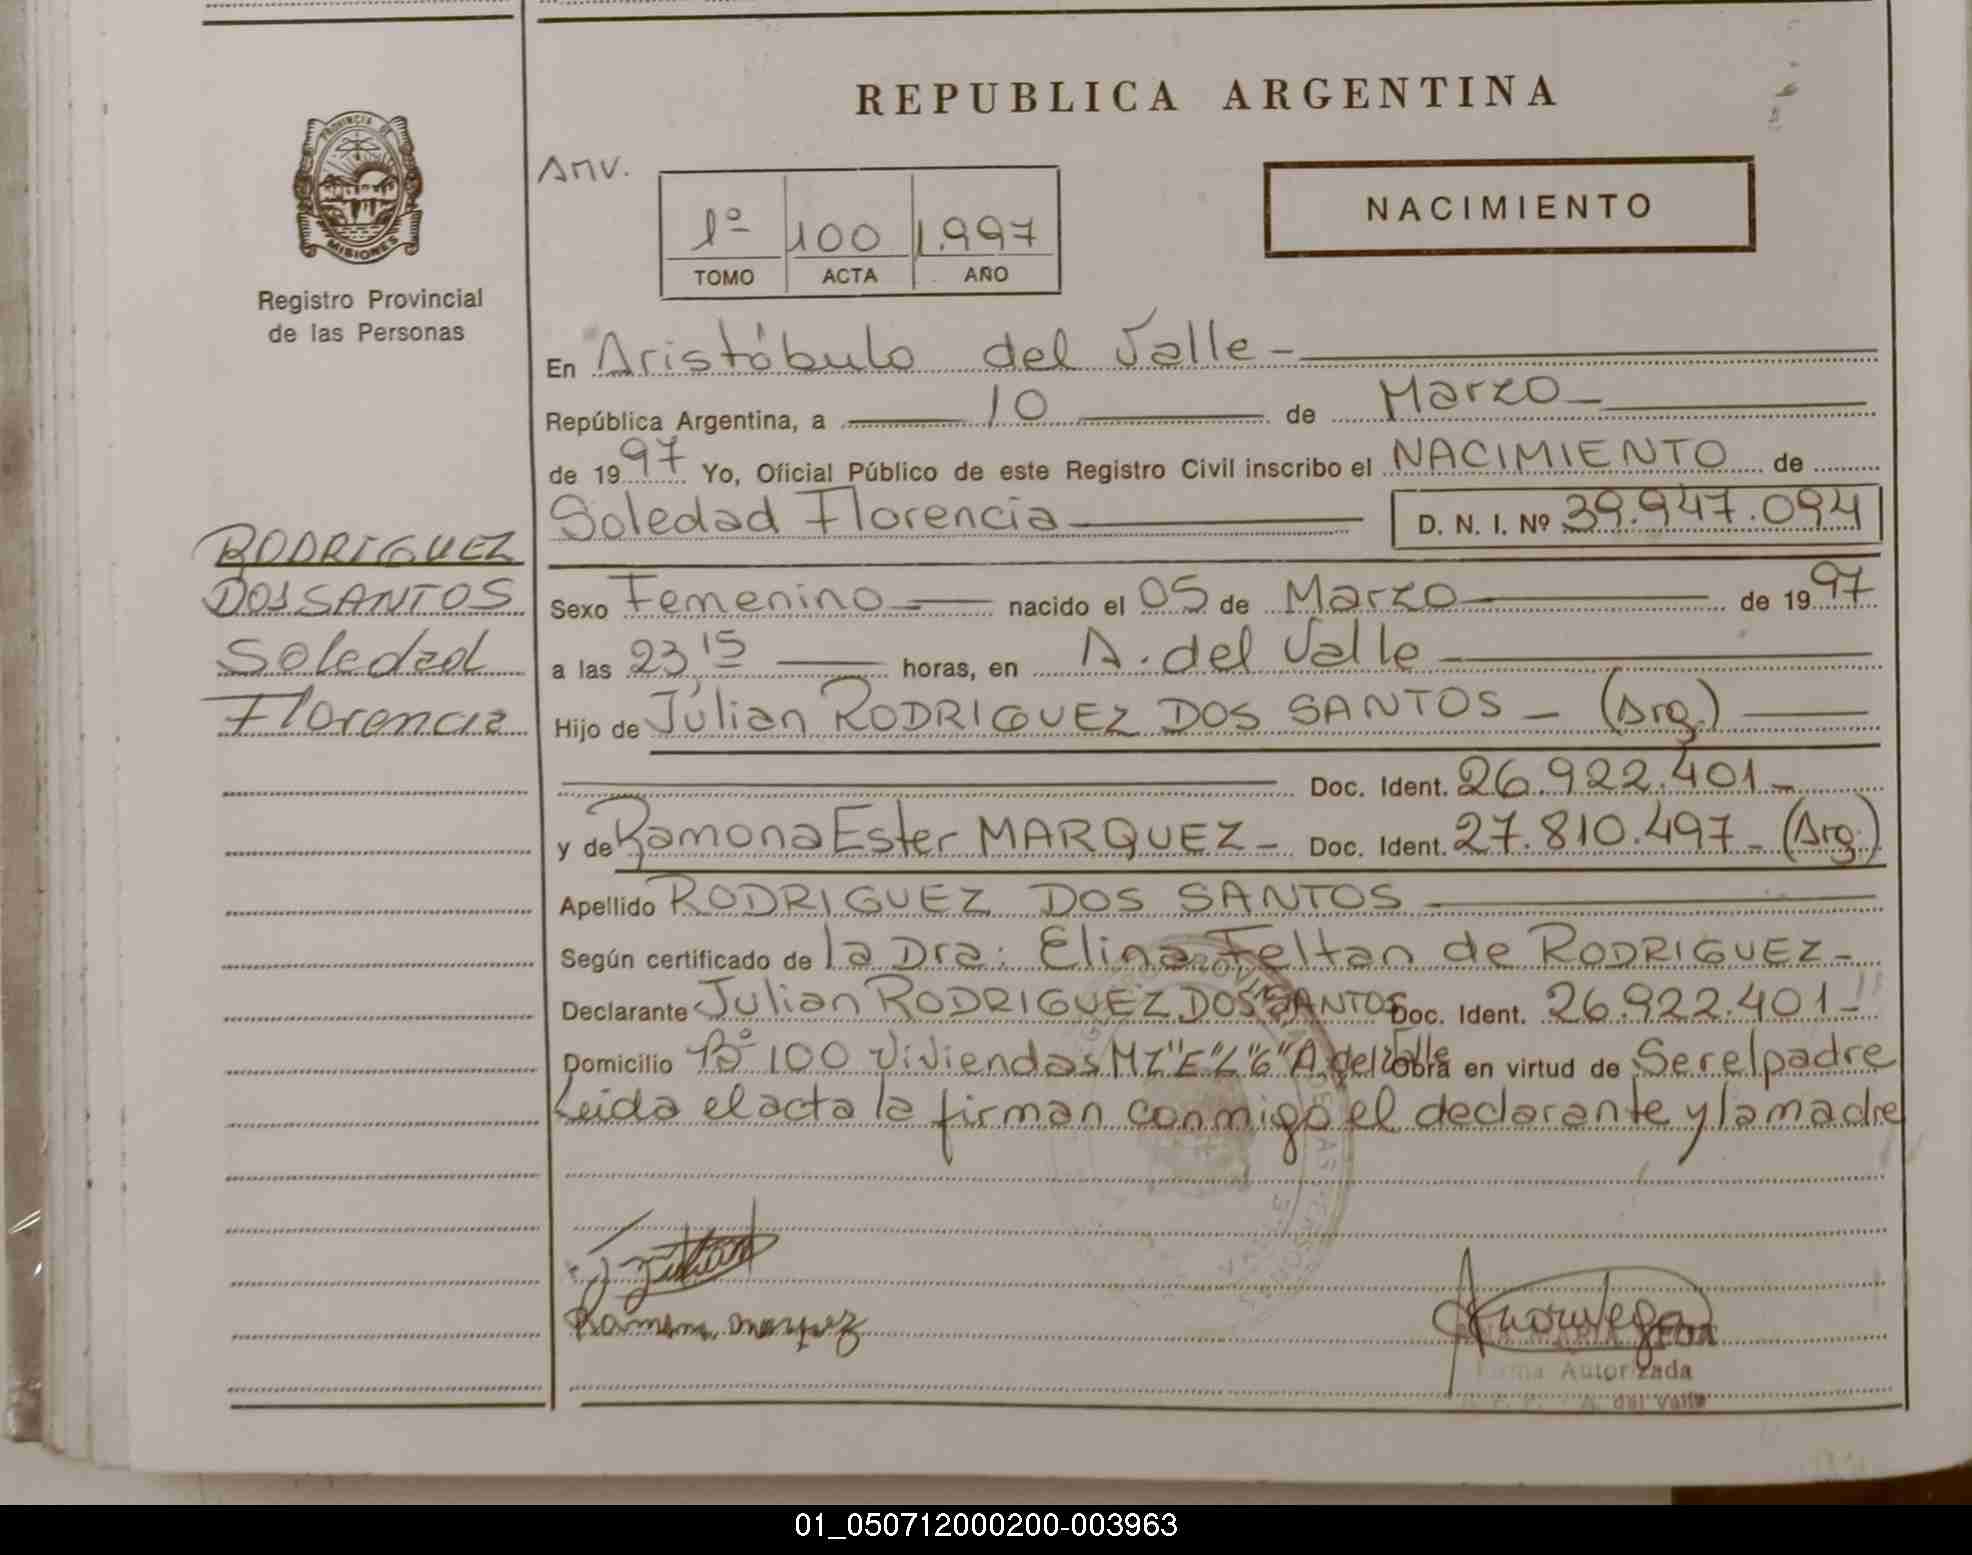 REPUBLICA ARGENTINA
PROVINCIA DE
MISIONES
Registro Provincial
de las Personas
Anv.
1º 100 1.997
TOMO ACTA AÑO
NACIMIENTO
En Aristóbulo del Valle -
República Argentina, a 10 de Marzo -
de 1997 Yo, Oficial Público de este Registro Civil inscribo el NACIMIENTO de
Soledad Florencia D. N. I. Nº 39.947.094
RODRIGUEZ
DOS SANTOS
Soledad
Florencia
Sexo Femenino nacido el 05 de Marzo de 1997
a las 23 15 horas, en A. del Valle
Hijo de Júlian RODRIGUEZ DOS SANTOS - (Arg.)
Doc. Ident. 26.922.401 -
y de Ramona Ester MARQUEZ - Doc. Ident. 27.810.497 - (Arg.)
Apellido RODRIGUEZ DOS SANTOS
Según certificado de la Dra: Elina Feltan de RODRIGUEZ -
Declarante Julian RODRIGUEZ DOS SANTOS Doc. Ident. 26.922.401 -
Domicilio Bº 100 Viviendas MZ "E" L "6" A. del Valle Obra en virtud de Ser el padre
Leida el acta la firman conmigo el declarante y la madre
Julian
Ramona Marquez
Firma Autorizada
A. del Valle
01_050712000200-003963